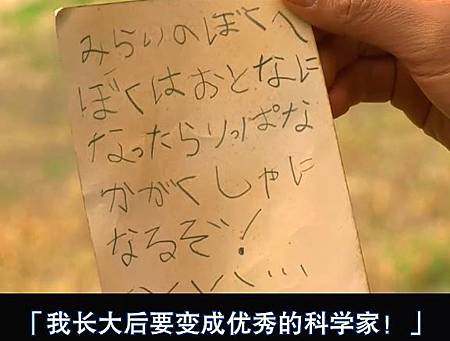 みらいのぼくへ
ぼくはおとなに
なったらりっぱな
かがくしゃに
なるぞ！
「我长大后要变成优秀的科学家！」